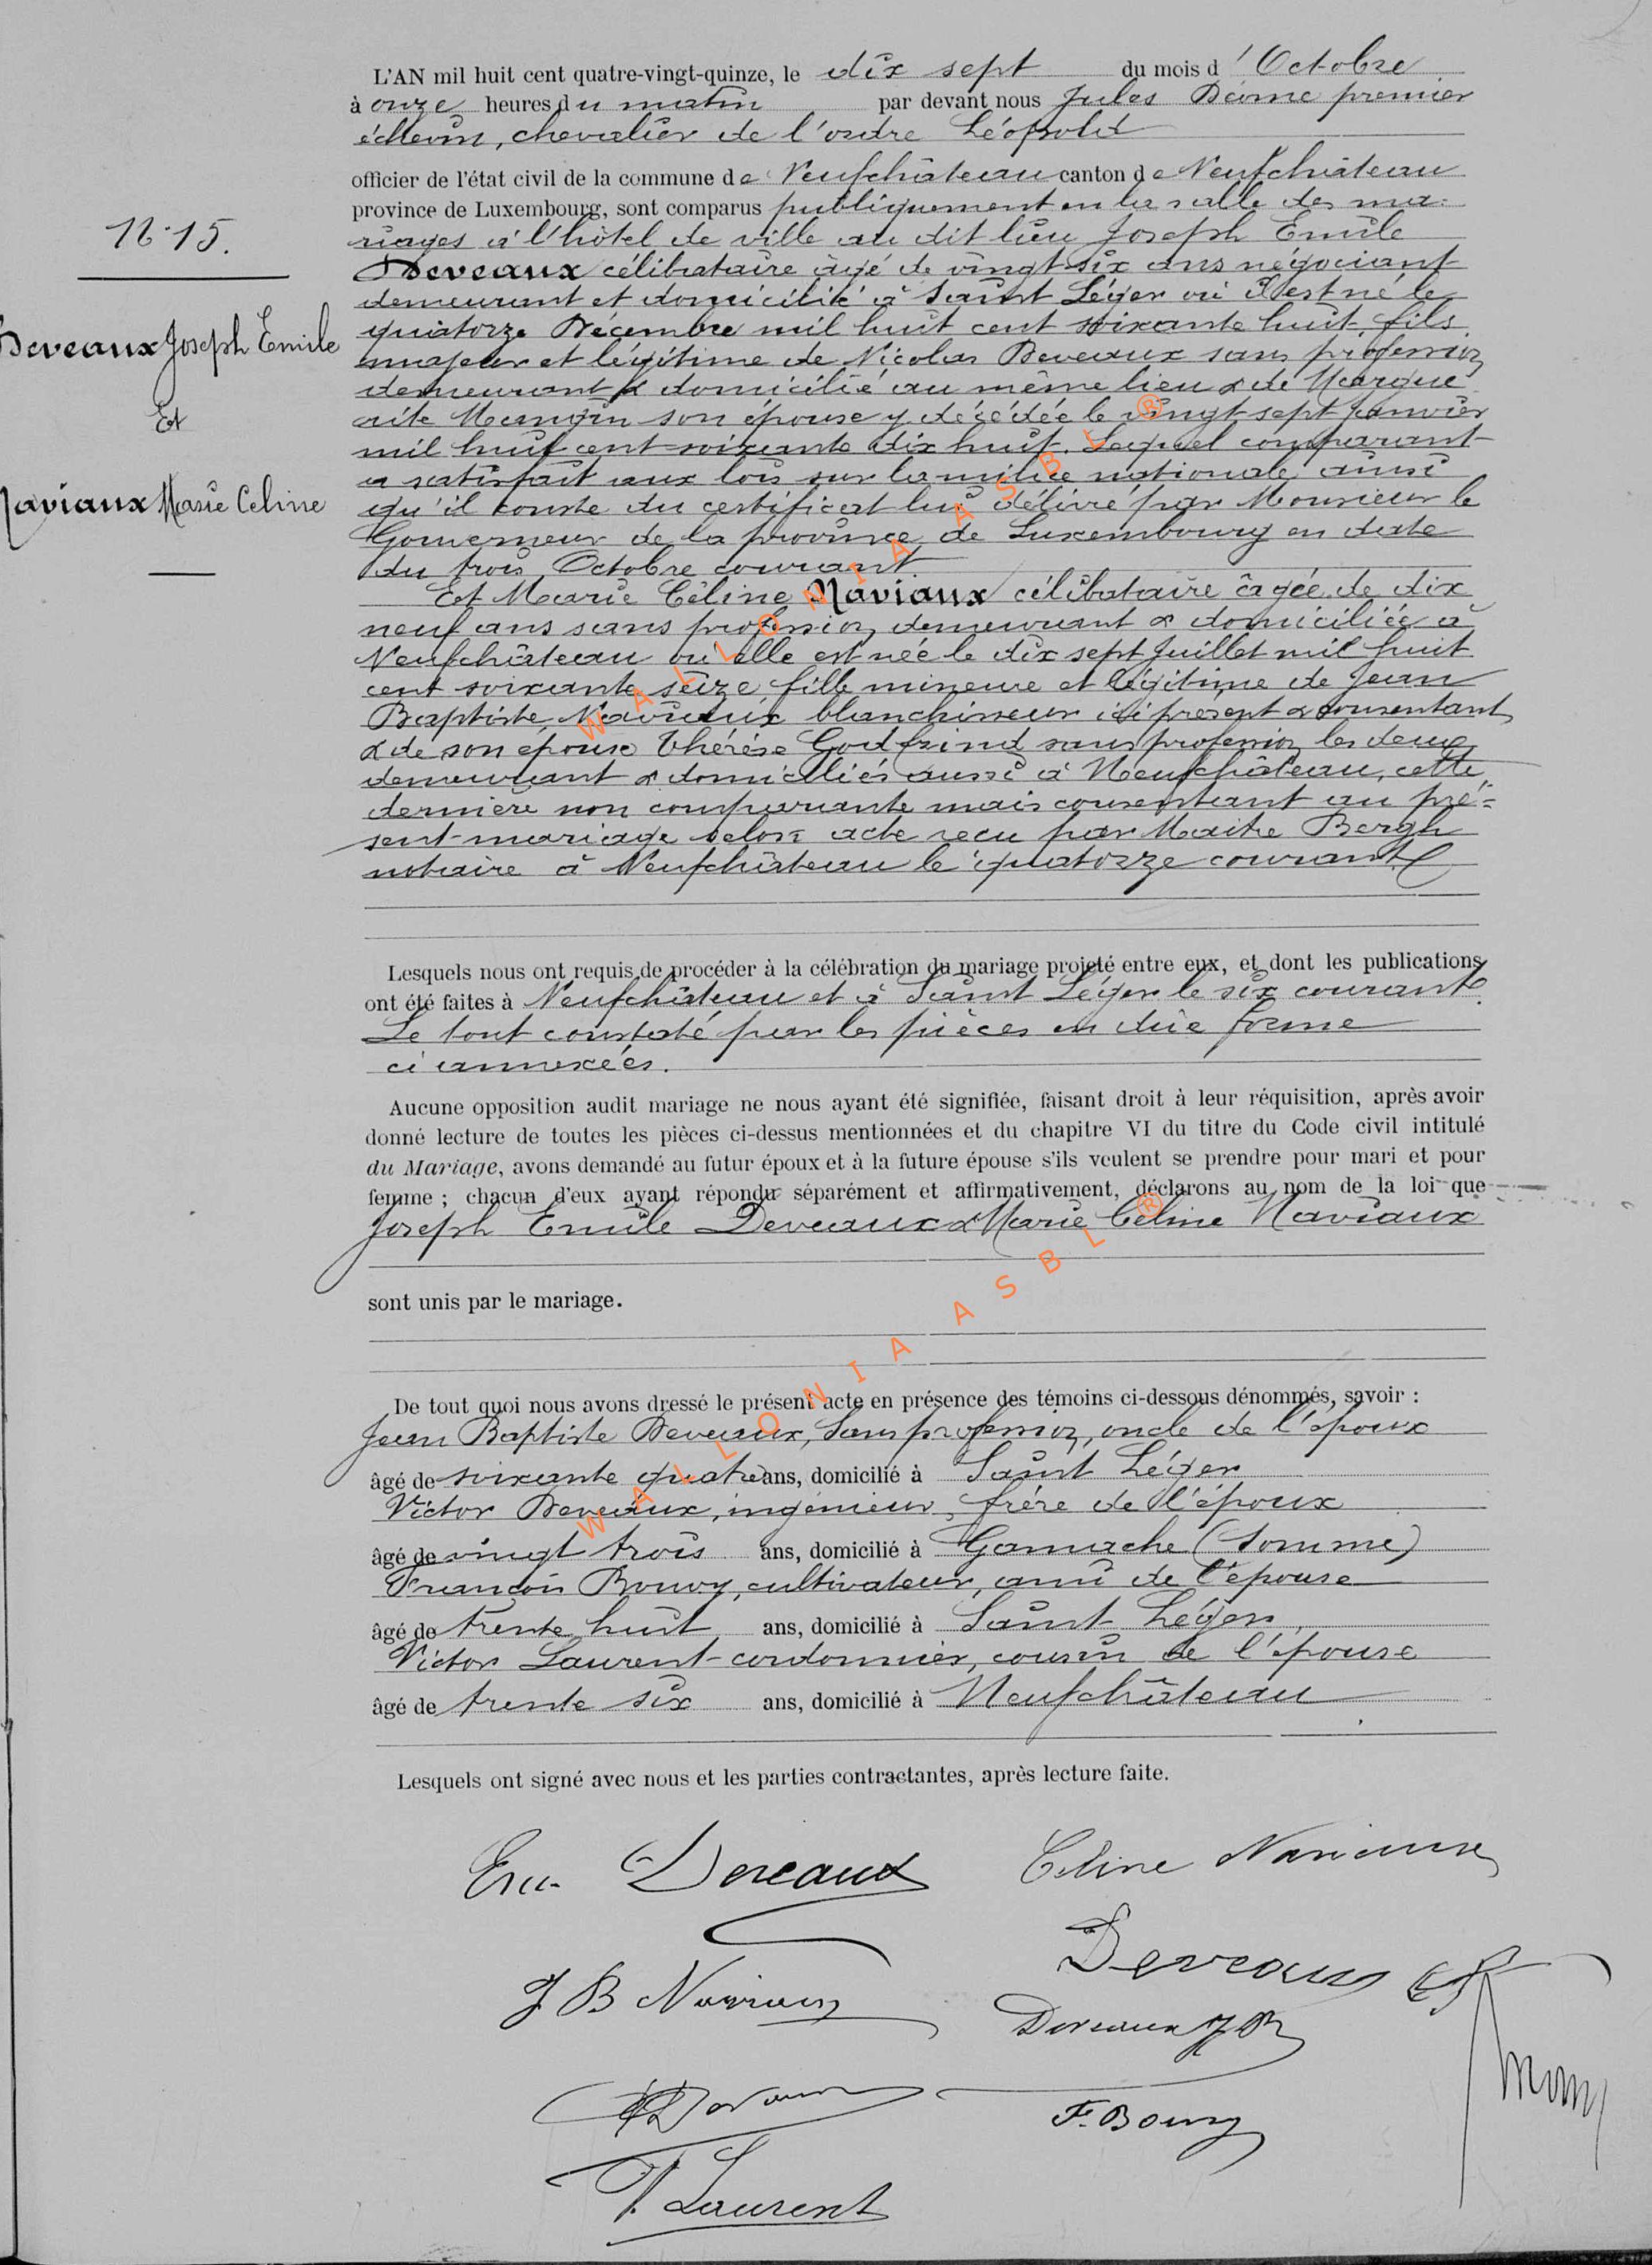 L'AN mil huit cent quatre-vingt-quinze, le dix sept du mois d'Octobre
à onze heures du matin par devant nous Jules premier
échevin, chevalier de l'ordre Léopold
officier de l'état civil de la commune de Neufchâteau canton de Neufchâteau
province de Luxembourg, sont comparus publiquement en la salle des ma-
riages à l'hôtel de ville au dit lieu Joseph Emile
Deveaux célibataire âgé de vingt six ans négociant
demeurant et domicilié à Saint Léger où il est né le
quatorze Décembre mil huit cent soixante huit, fils
majeur et légitime de Nicolas Deveaux sans profession
demeurant & domicilié au même lieu & de Margue
rite Mangin son épouse y décédée le vingt sept Janvier
mil huit cent soixante dix huit. Lequel comparant
a satisfait aux lois sur la milice nationale ainsi
qu'il conste du certificat lui délivré par Monsieur le
Gouverneur de la province de Luxembourg en date
du trois Octobre courant
Et Marie Céline Naviaux célibataire âgée de dix
neuf ans sans profession demeurant & domiciliée à
Neufchâteau où elle est née le dix sept Juillet mil huit
cent soixante seize fille mineure et légitime de Jean
Baptiste Naviaux blanchisseur ici présent & consentant
& de son épouse Thérèse Godfrind sans profession les deux
demeurant & domiciliés aussi à Neufchâteau, cette
dernière non comparante mais consentant au pré-
sent mariage selon acte recu par Maitre Bergh
notaire à Neufchâteau le quatorze courant
N° 15.
Deveaux Joseph Emile
Et
Naviaux Marie Celine
Lesquels nous ont requis de procéder à la célébration du mariage projeté entre eux, et dont les publications
ont été faites à Neufchâteau et à Saint Léger le six courant.
Le tout constaté par les pièces en due forme
ci annexées.
Aucune opposition audit mariage ne nous ayant été signifiée, faisant droit à leur réquisition, après avoir
donné lecture de toutes les pièces ci-dessus mentionnées et du chapitre VI du titre du Code civil intitulé
du Mariage, avons demandé au futur époux et à la future épouse s'ils veulent se prendre pour mari et pour
femme ; chacun d'eux ayant répondu séparément et affirmativement, déclarons au nom de la loi que
Joseph Emile Deveaux & Marie Céline Naviaux
sont unis par le mariage.
De tout quoi nous avons dressé le présent acte en présence des témoins ci-dessous dénommés, savoir :
Jean Baptiste Deveaux, Sans profession, oncle de l'époux
âgé de soixante quatre ans, domicilié à Saint Léger
Victor Deveaux, ingénieur, frère de l'époux
âgé de vingt trois ans, domicilié à Gamache (Somme)
François Bouvy, cultivateur, ami de l'épouse
âgé de trente huit ans, domicilié à Saint Léger
Victor Laurent cordonnier, cousin de l'épouse
âgé de trente six ans, domicilié à Neufchâteau
Lesquels ont signé avec nous et les parties contractantes, après lecture faite.
Em. Deveaux Céline Naviaux
Deveaux
J B Naviaux
Deveaux J B
F. Bouvy
V. Laurent
WALLONIA ASBL ®
WALLONIA ASBL ®